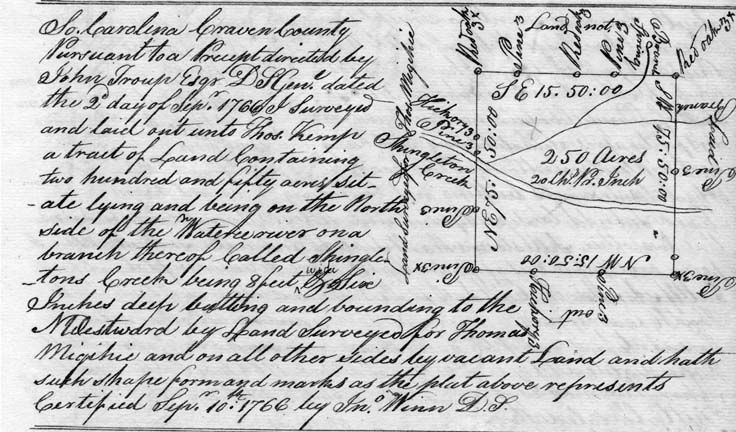 So. Carolina Craven County
Pursuant to a Precept directed by
John Troup Esqr. D S Genl. dated
the 2d. day of Sepr. 1766 I Surveyed
and laid out unto Thos. Kemp
a tract of Land Containing
two hundred and fifty acres sit-
-ate lying and being on the North
side of the Wateree river on a
branch thereof Called Shingle-
-tons Creek being 8 feet wide & Six
Inches deep butting and bounding to the
N Westward by Land Surveyed for Thomas
Migihie and on all other sides by vacant Land and hath
such shape form and marks as the plat above represents
Certified Sepr. 10th. 1766 by Jno. Winn D. S.
Red oak 3x
Pine 3
Land not
Spring
Branch
Red oak 3x
S E 15.50:00
Land Surveyed for Thos. Migihie
Hickory 3
Pine 3
Shingleton
Creek
250 Acres
20 Chs. Pr. Inch
S W 75:50:00
Branch
Pine 3
Pine 3
Pine 3x
N W 15:50:00
Pine 3x
Hickory 3
Pine 3
out